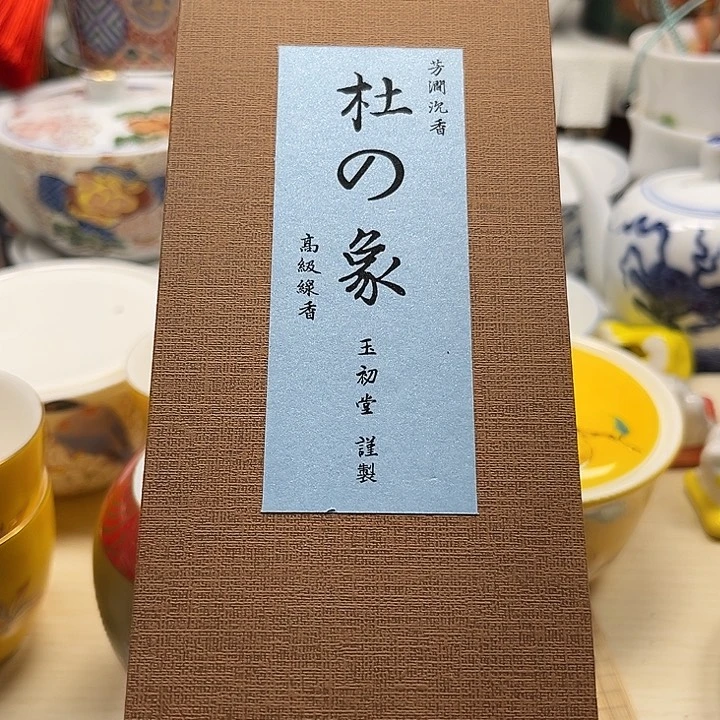 芳潤沉香
杜の象
高級線香
玉初堂 謹製